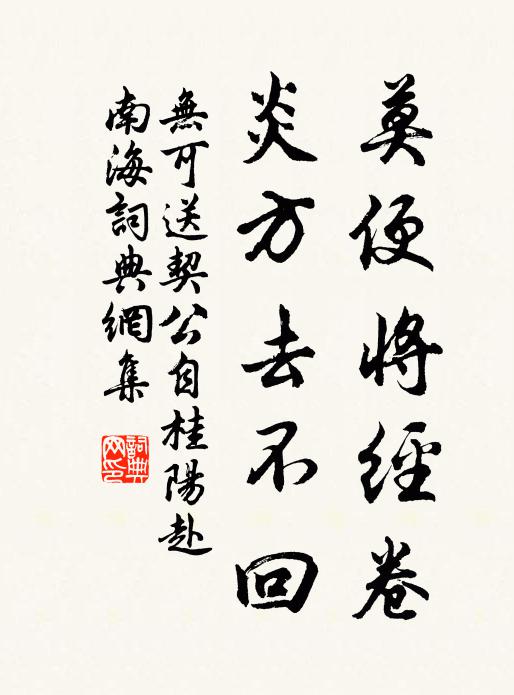 莫便將經卷
炎方去不回
無可送契公自桂陽赴
南海詞典網集
詞典网印